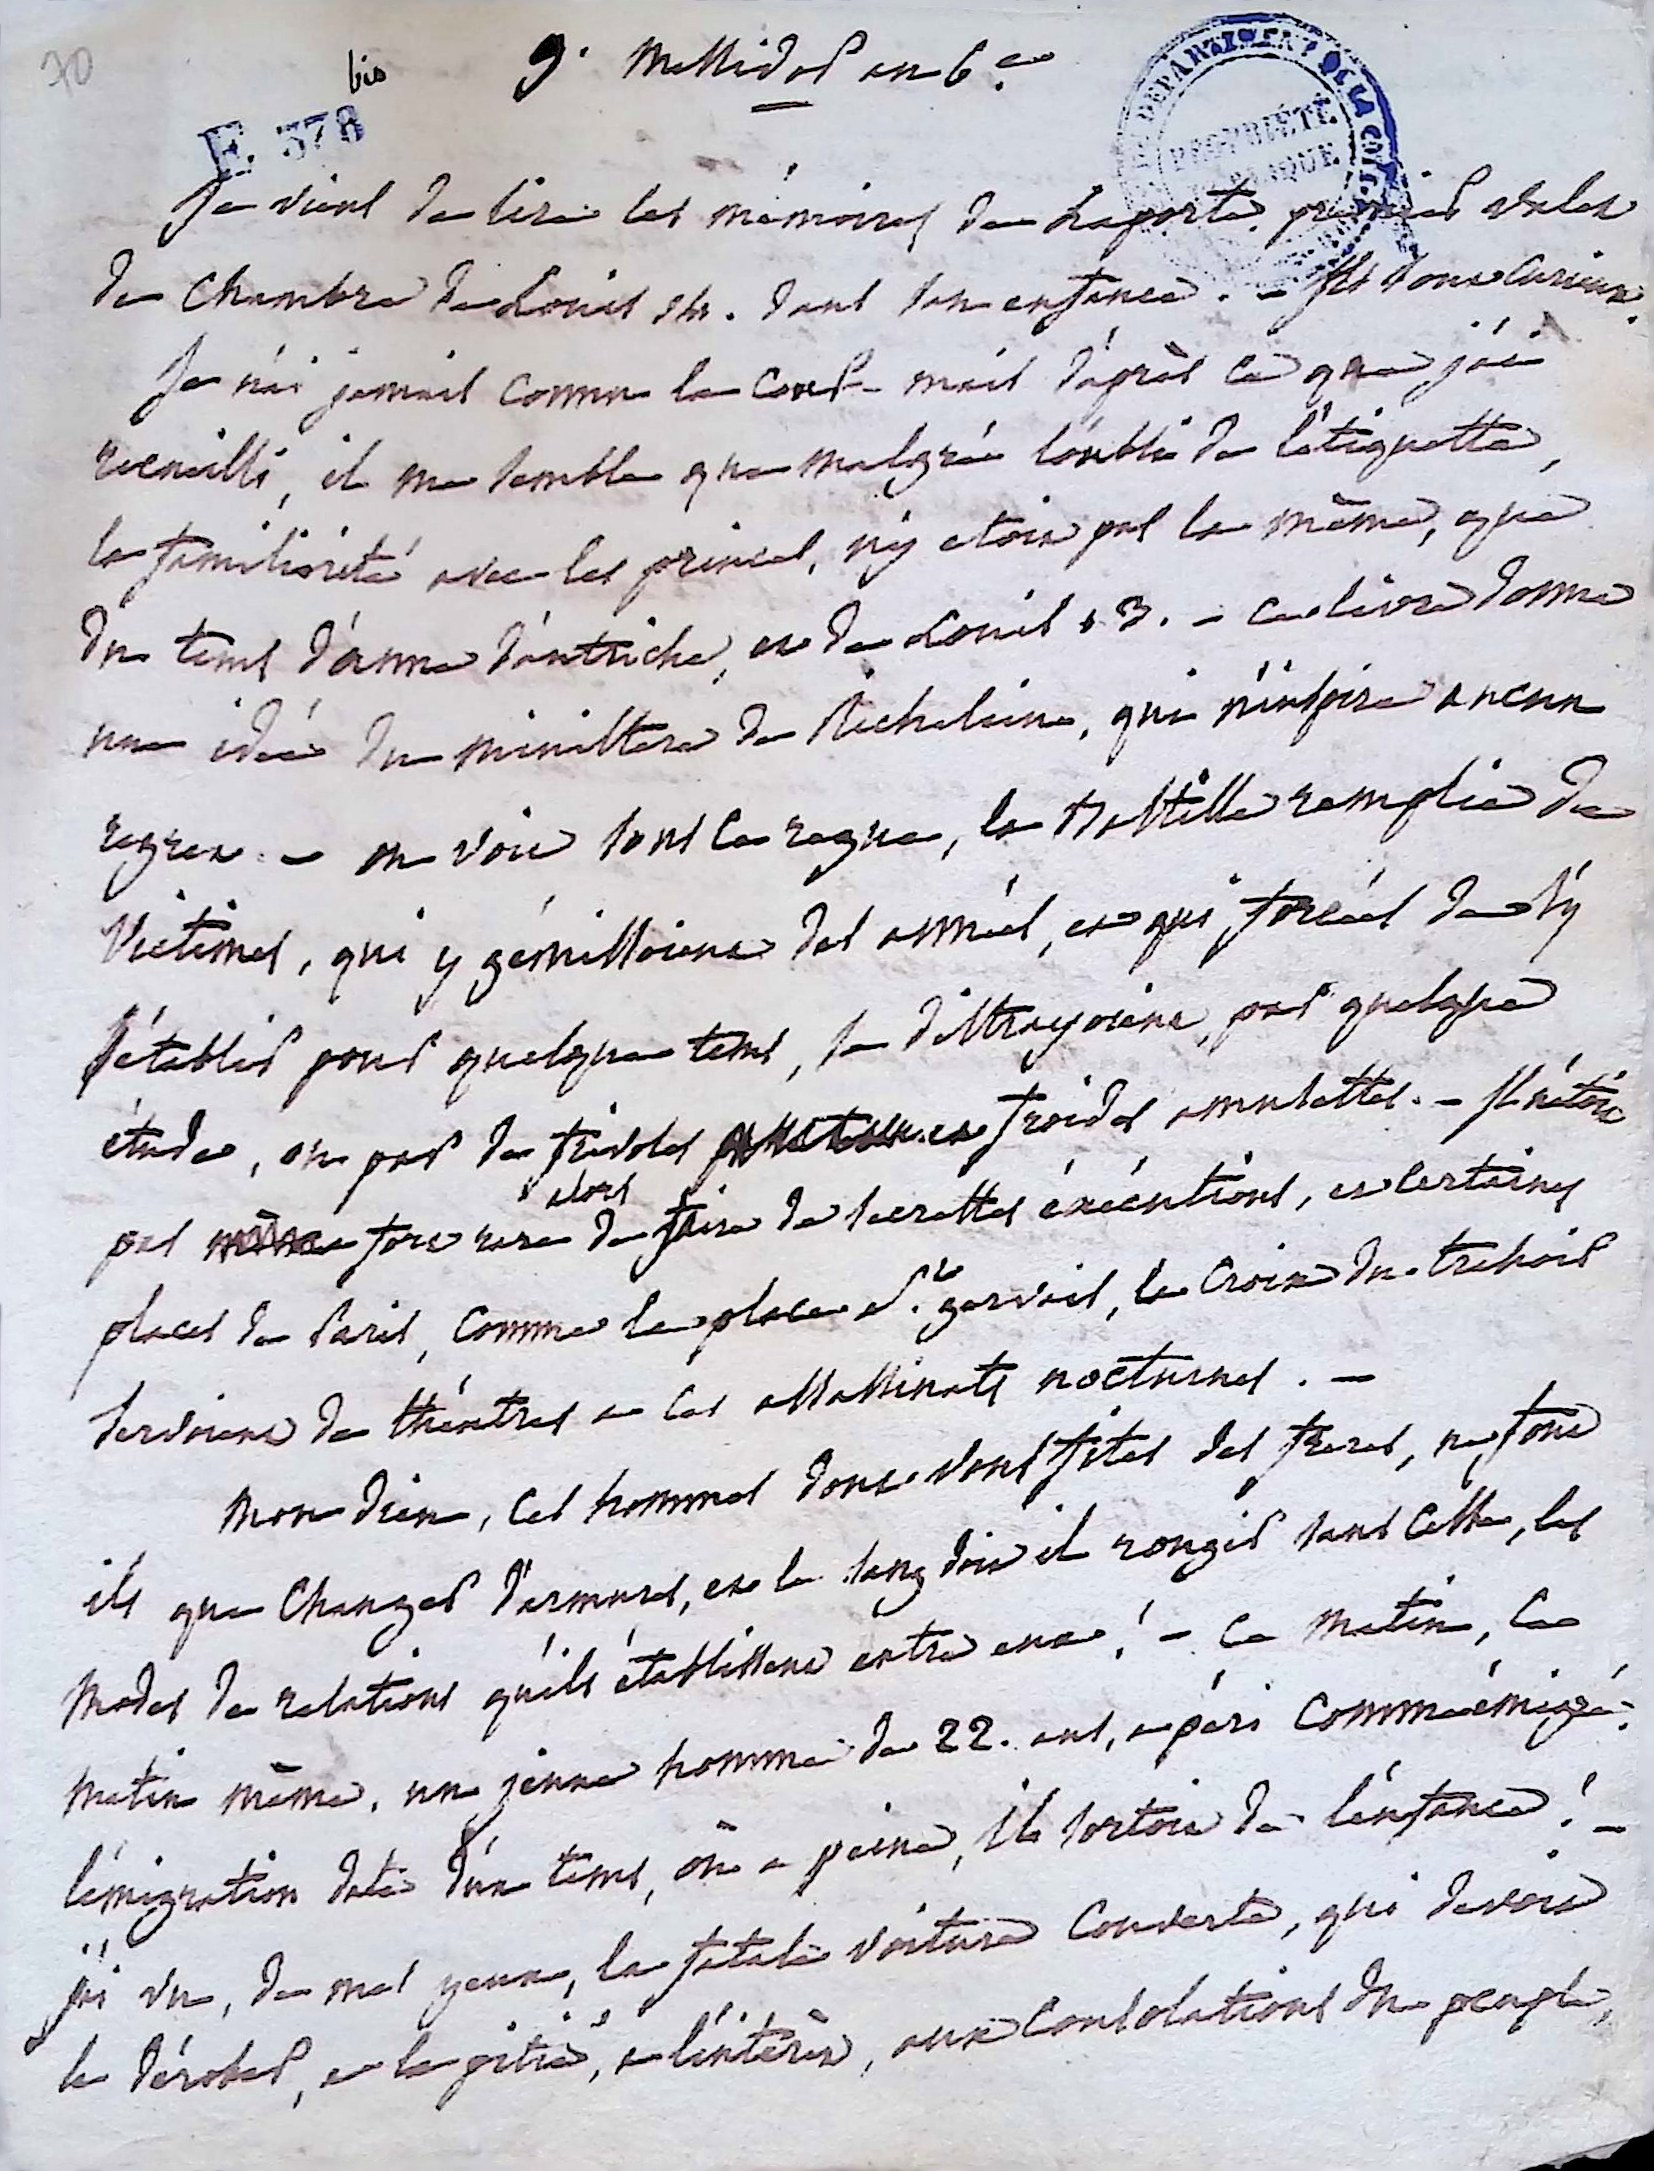 70
bis
9. Messidor an 6.e
E. 378
PROPRIÉTÉ
PUBLIQUE
Je viens de lire les mémoires de Laporte, premier valet
de chambre de Louis 14. dans son enfance. - Ils sont curieux.
Je n'ai jamais connu la cour - mais d'après ce que j'ai
recueilli, il me semble que malgré l'oubli de l'étiquette,
la familiarité avec les princes, n'y etoit pas la même, que
du tems d'anne d'autriche, et de Louis 13. - ce livre donne
une idée du ministere de Richelieu, qui n'inspire aucun
regret. - on voit sous ce regne, la Bastille remplie de
victimes, qui y gémissoient des années, et qui forcées de s'y
s'établir pour quelque tems, se distrayoient, par quelque
étude, ou par de frivoles et froides amusettes. - Il n'étoit
pas alors fort rare de faire de secrettes éxécutions, et certaines
places de Paris, comme la place St. gervais, la croix du trahoir
servoient de théatres a ces assassinats nocturnes. -
Mon dieu, ces hommes dont vous fites des freres, ne font
ils que changer d'armures, et le sang doit il rougir sans cesse, les
modes de relations qu'ils établissent entre eux ! - Ce matin, ce
matin même, un jeune homme de 22. ans, a péri comme émigré.
l'émigration date d'un tems, où a peine, il sortoit de l'enfance ! -
j'ai vu, de mes yeux, la fatale voiture couverte, qui devoit
le dérober, a la pitié, a l'intérêt, aux consolations du peuple,